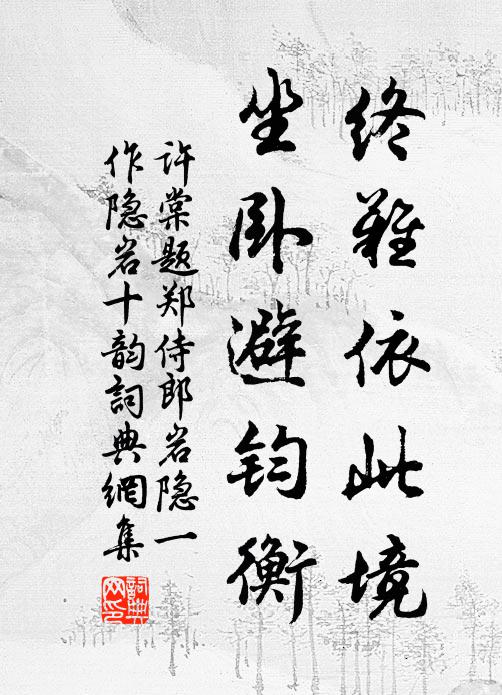 终难依此境
坐卧避钧衡
许棠题郑侍郎岩隐一
作隐岩十韵詞典網集
詞典網印